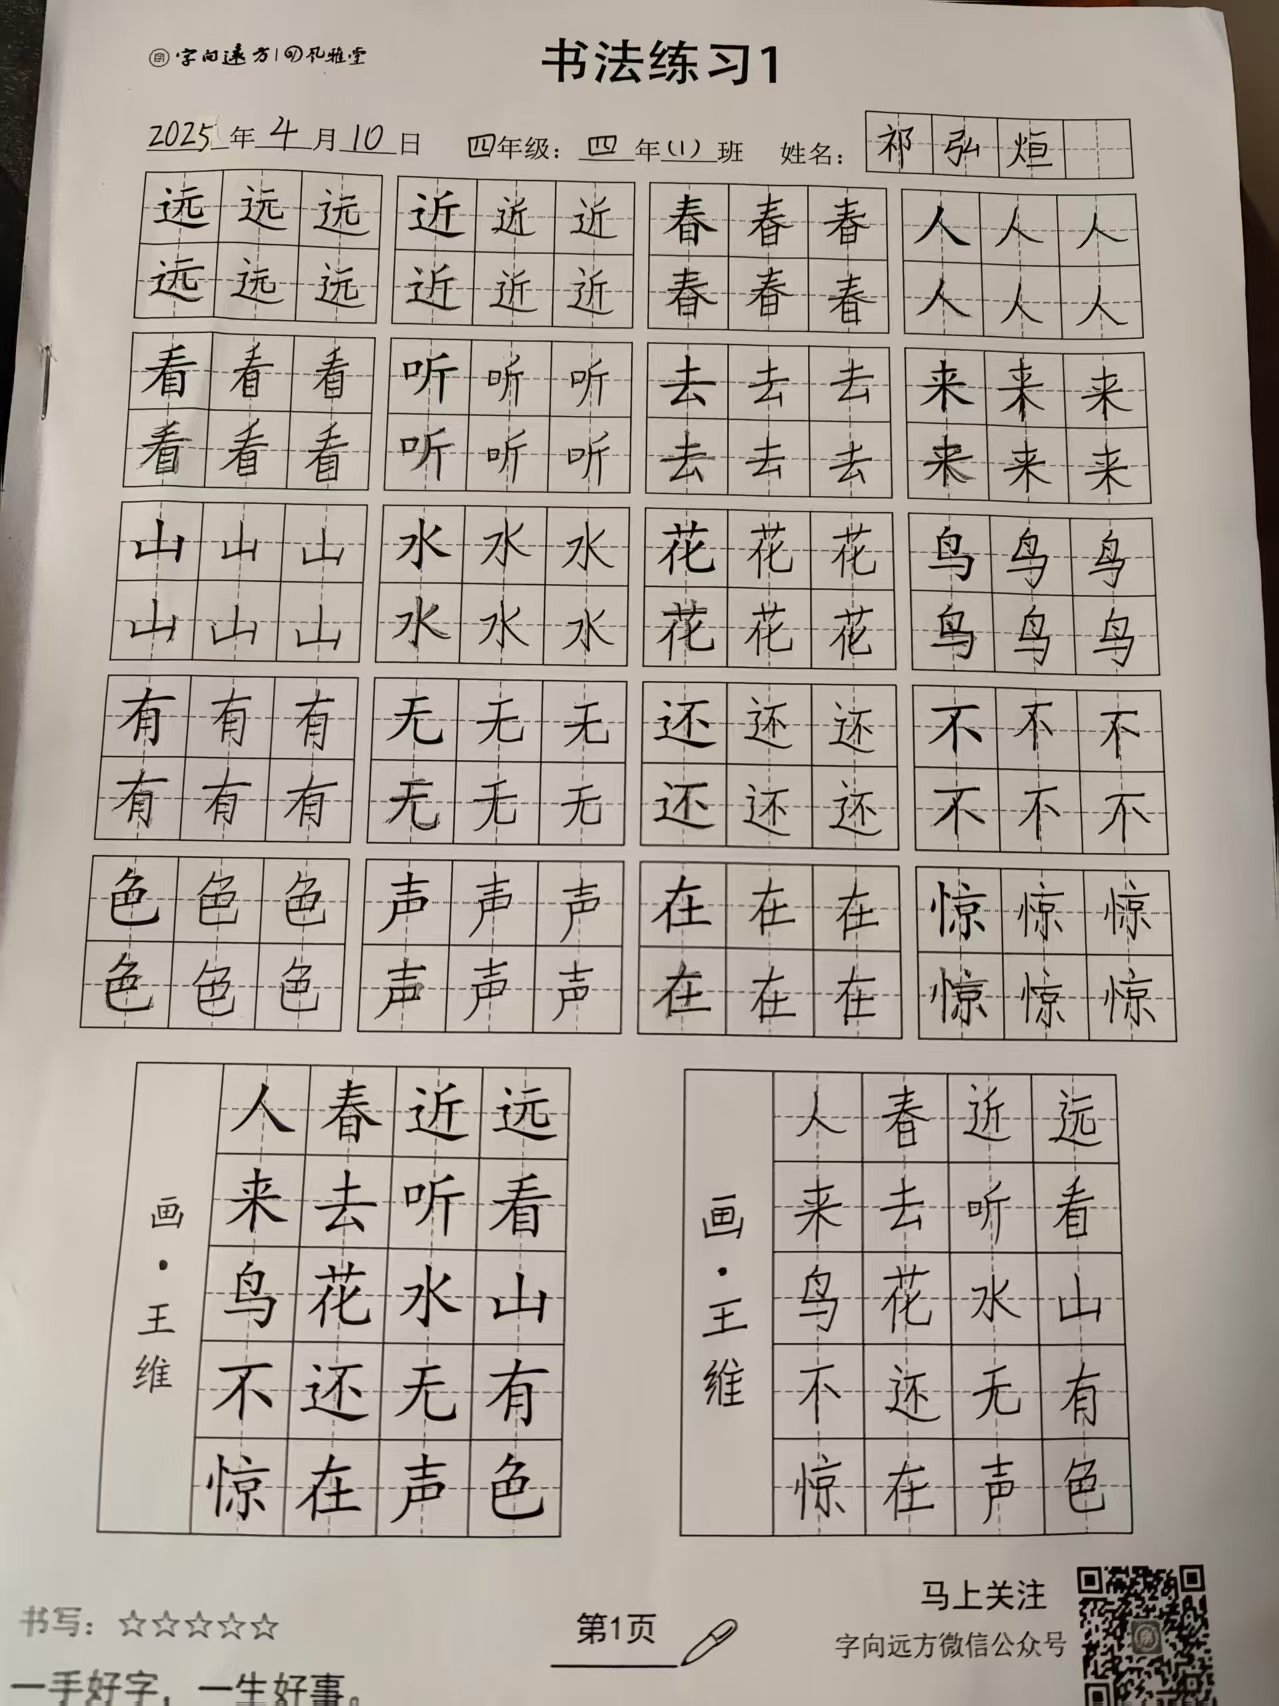 字向远方 | 孔雅堂
书法练习1
2025年4月10日 四年级：四年(1)班 姓名：祁弘烜
远远远 近近近 春春春 人人人
远远远 近近近 春春春 人人人
看看看 听听听 去去去 来来来
看看看 听听听 去去去 来来来
山山山 水水水 花花花 鸟鸟鸟
山山山 水水水 花花花 鸟鸟鸟
有有有 无无无 还还还 不不不
有有有 无无无 还还还 不不不
色色色 声声声 在在在 惊惊惊
色色色 声声声 在在在 惊惊惊
远看山有色
近听水无声
春去花还在
人来鸟不惊
画·王维
远看山有色
近听水无声
春去花还在
人来鸟不惊
画·王维
书写：☆☆☆☆☆
一手好字，一生好事。
第1页
马上关注
字向远方微信公众号